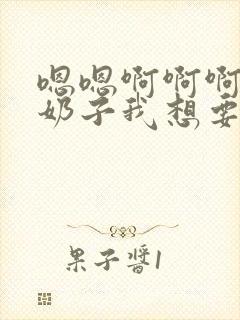 嗯嗯啊啊啊
奶子我想要
果子酱1